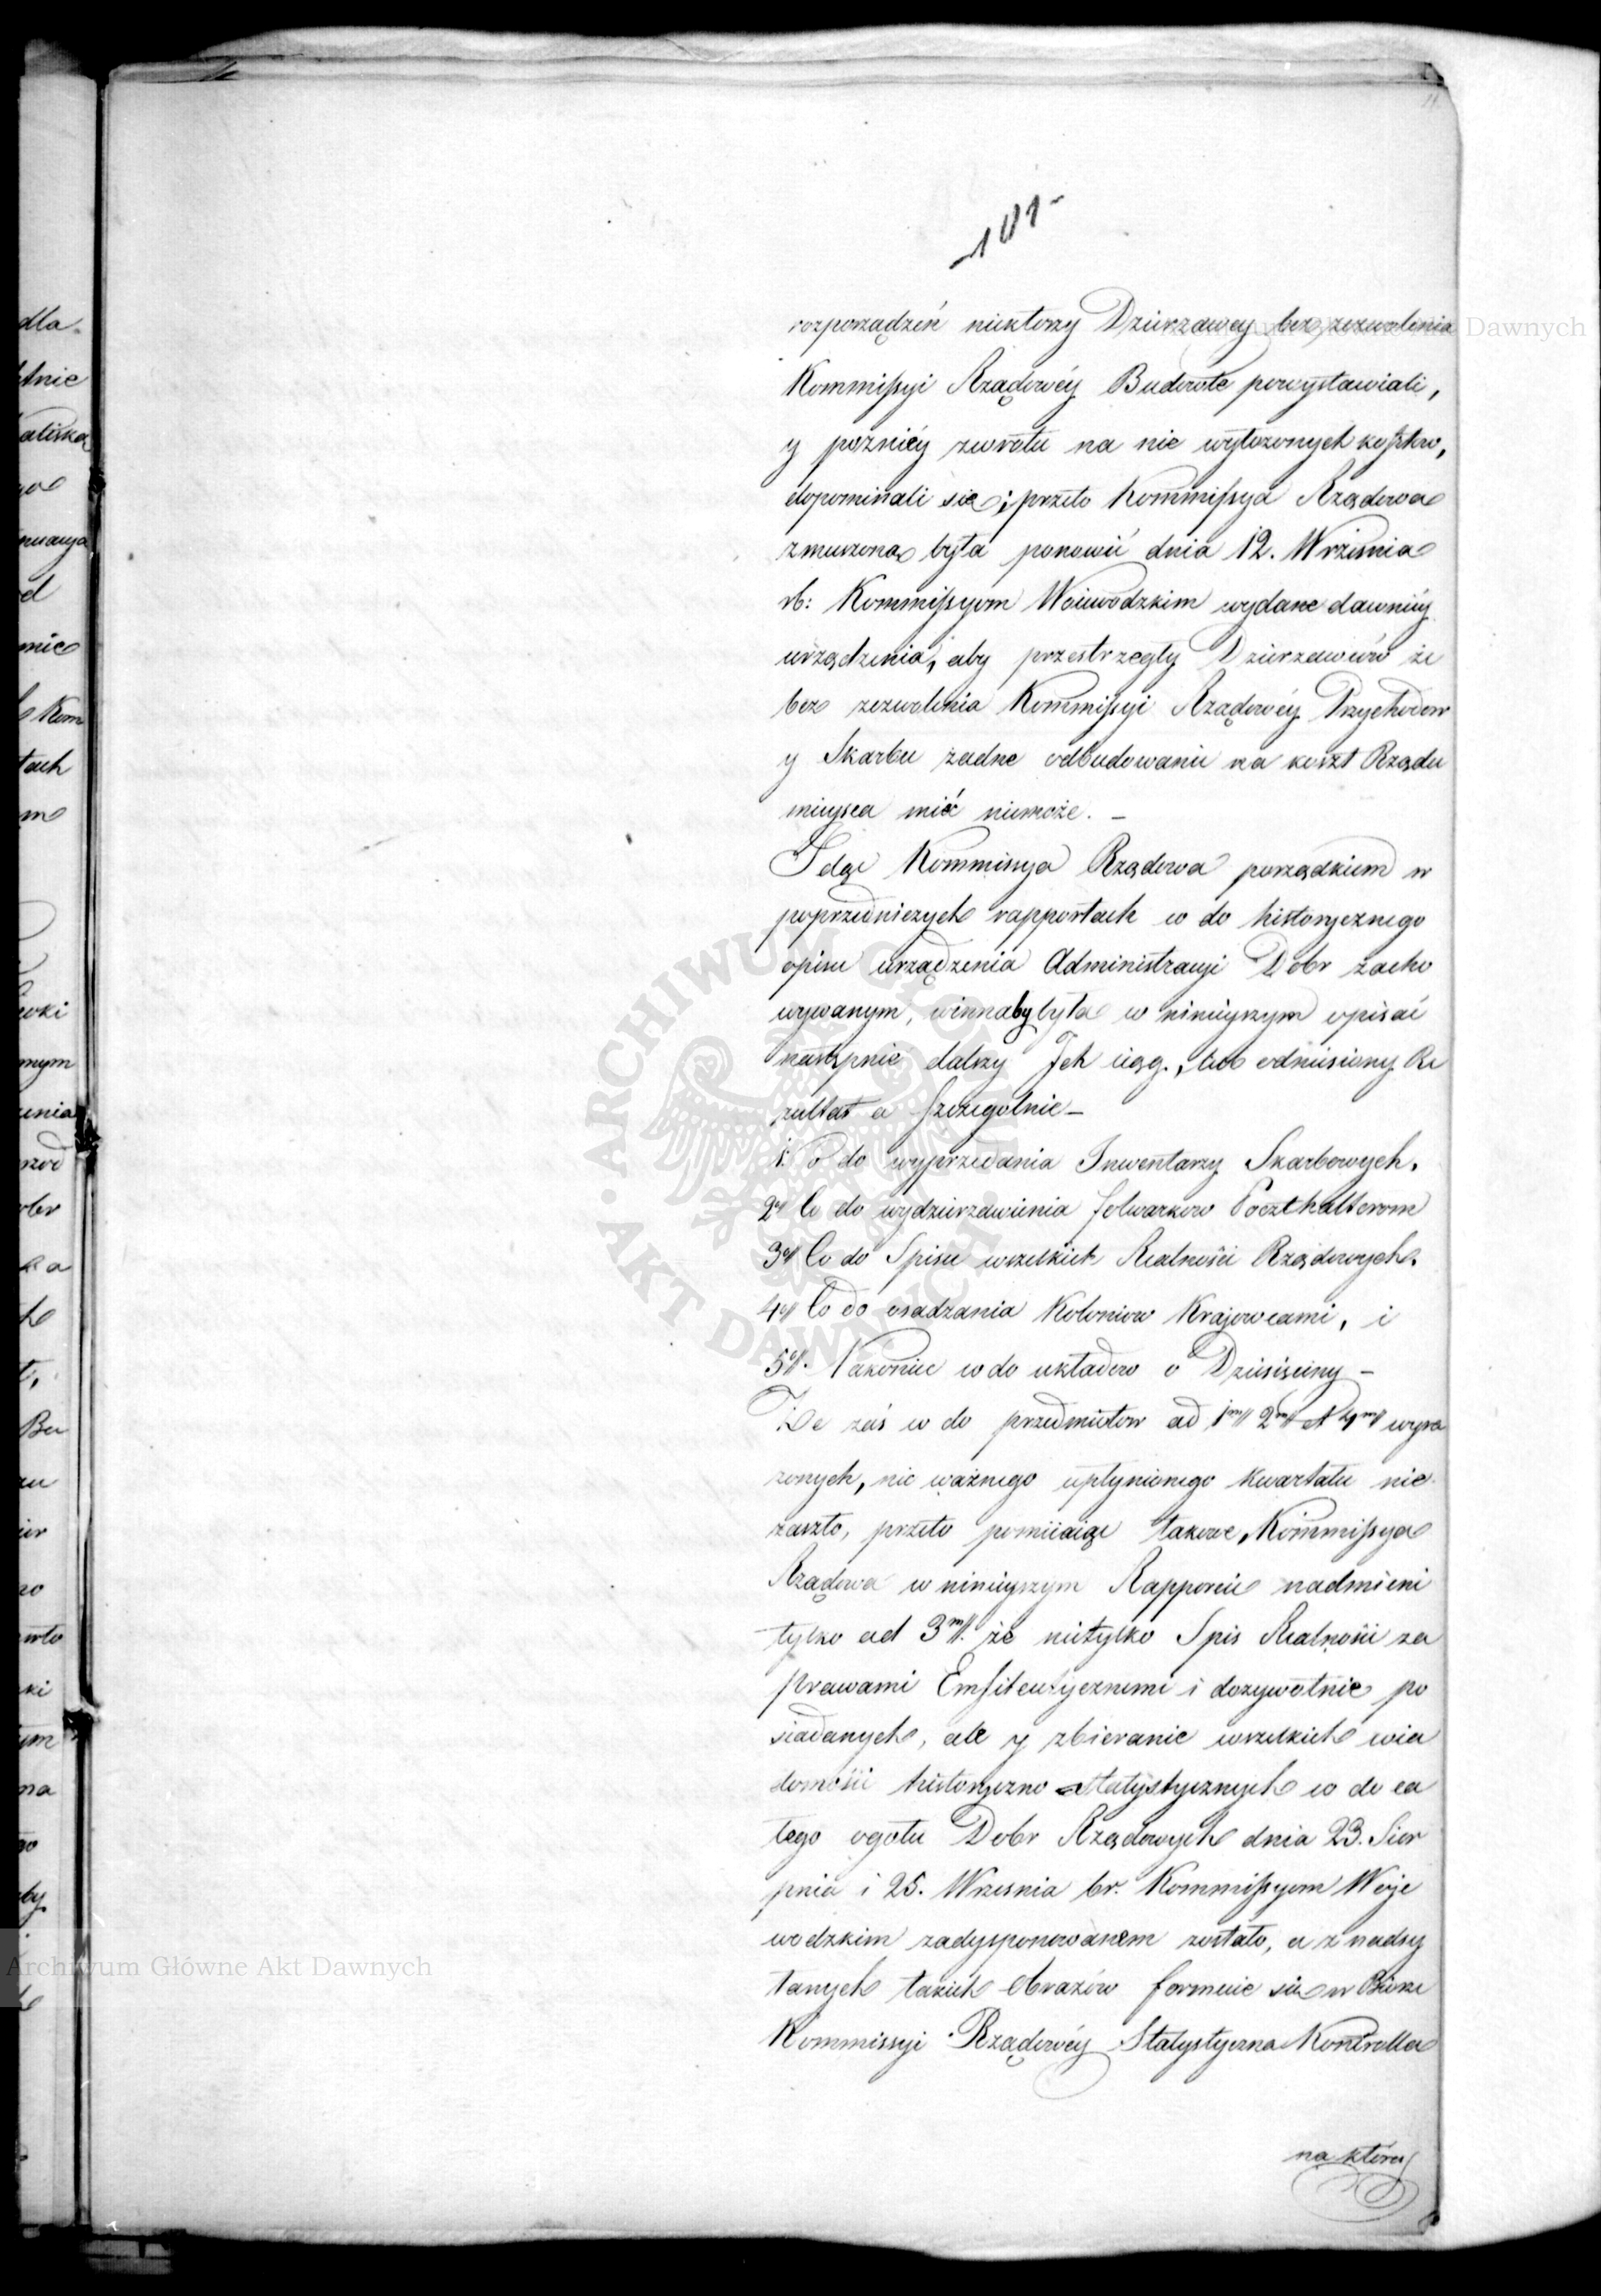 -101-
rozporządzeń niektorzy Dzierzawcy bez zezwolenia
Kommißyi Rządowéy Budowle powystawiali,
y pozniéy zwrotu na nie wyłozonych kosztow,
dopominali się; przeto Kommißya Rządowa
zmuszona była ponowić dnia 12. Września
rb: Kommißyom Woiewodzkim wydane dawniéy
urządzenia, aby przestrzegły Dzierzawców że
bez zezwolenia Kommißyi Rządowéy Przychodow
y Skarbu żadne odbudowanie na koszt Rządu
mieysca mieć niemoże. –
Idąc Kommissya Rządowa porządkiem w
poprzedniczych rapportach co do historycznego
opisu urządzenia Administracyi Dobr zacho
wywanym, winnaby była w ninieyszym opisać
następnie dalszy Jch ciąg., lub odniesiony Re
zultat a szczegolnie –
1. Co do wyprzedania Inwentarzy Skarbowych.
2o/ Co do wydzierzawienia folwarkow Poczthalterom
3o/ Co do Spisu wszelkich Realności Rządowych.
4o/ Co do osadzania Koloniow Krajowcami, i
5o/. Nakoniec co do układow o Dziesięciny –
Że zaś co do przedmiotow ad 1m/ 2m/ et 4m/ wyra
zonych, nic ważnego upłynionego kwartału nie
zaszło, przeto pomiiaiąc takowe, Kommißya
Rządowa w ninieyszym Rapporcie nadmieni
tylko ad 3m/. że nietylko Spis Realności za
prawami Emfiteutycznemi i dozywotnie po
siadanych, ale y zbieranie wszelkich wia
domości historyczno statystycznych co do ca
łego ogołu Dobr Rządowych dnia 23. Sier
pnia i 25. Wrzesnia br. Kommißyom Woje
wodzkim zadysponowanem zostało, a z nadsy
łanych takich Obrazów formuie się w Biorze
Kommissyi Rządowéy Statystyczna Kontrolla
na którey
dla
Kom
tach
Archiwum Główne Akt Dawnych
Dawnych
ARCHIWUM GŁÓWNE AKT DAWNYCH